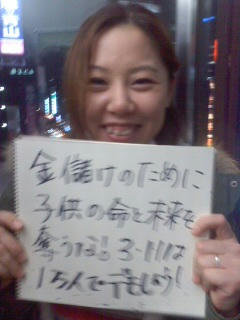 金儲けのために
子供の命と未来を
奪うな!3・11は
1万人でデモしよう!